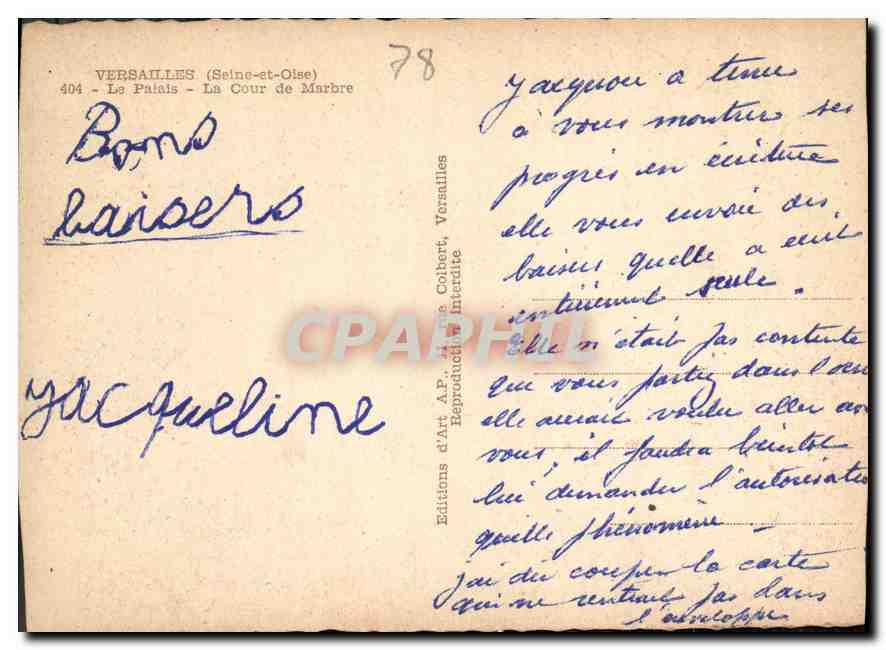 VERSAILLES (Seine-et-Oise)
404 - Le Palais - La Cour de Marbre
78
Bons
baisers
Jacqueline
Editions d'Art A.P., 11 rue Colbert, Versailles
Reproduction Interdite
CPAPHIL
a tenu
à vous montrer ses
progrès en écriture
elle vous envoie des
baisers quelle a écrit
entièrement seule.
Elle n'était pas contente
que vous partiez dans
elle aurait voulu aller
vous, il faudra bientot
lui demander l'autorisation
quelle phénomène
j'ai du couper la carte
qui ne rentrait pas dans
l'enveloppe